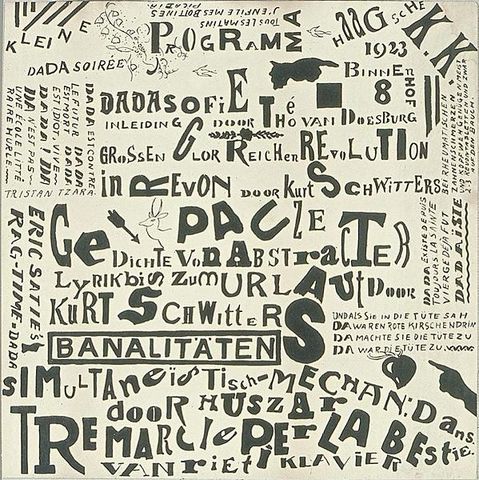 KLEINE
DADA SOIRÉE
TOUS LES MATINS
J'ENFILE MES BOTTINES
PICABIA
PROGRAMMA
HAAGSCHE K.K
1923
BINNENHOF
8
DADASOFIE
INLEIDING DOOR THÉO VAN DOESBURG
GROSSEN GLORREICHE REVOLUTION
IN REVON DOOR KURT SCHWITTERS
DADA EST CONTRE
LE FUTUR. DADA
EST MORT. DADA
EST IDIOT. VIVE
DADA! DADA
N'EST PAS
UNE ÉCOLE LITTÉ
RAIRE HURLE
TRISTAN TZARA.
BEI RHEUMATISCHEN
ZAHNSCHMERZEN
GeDICHTE VON ABSTRACTER
PAUZE
LYRIK BIS ZUM URLAUT DOOR
KURT SCHWITTERS
PAUZE
DADA EXISTE DEPUIS
TOUJOURS LA SAINTE
VIERGE DÉJÀ FUT
DADAÏSTE
ERIC SATIES
RAG-TIME-DADA
BANALITÄTEN
UND ALS SIE IN DIE TÜTE SAH
DA WAREN ROTE KIRSCHEN DRIN
DA MACHTE SIE DIE TÜTE ZU
DA WAR DIE TÜTE ZU
SIMULTANEÏSTISCH-MECHAN: DANS.
DOOR HUSZAR
TREMARCIE PER LA BESTIE.
VAN RIETI KLAVIER